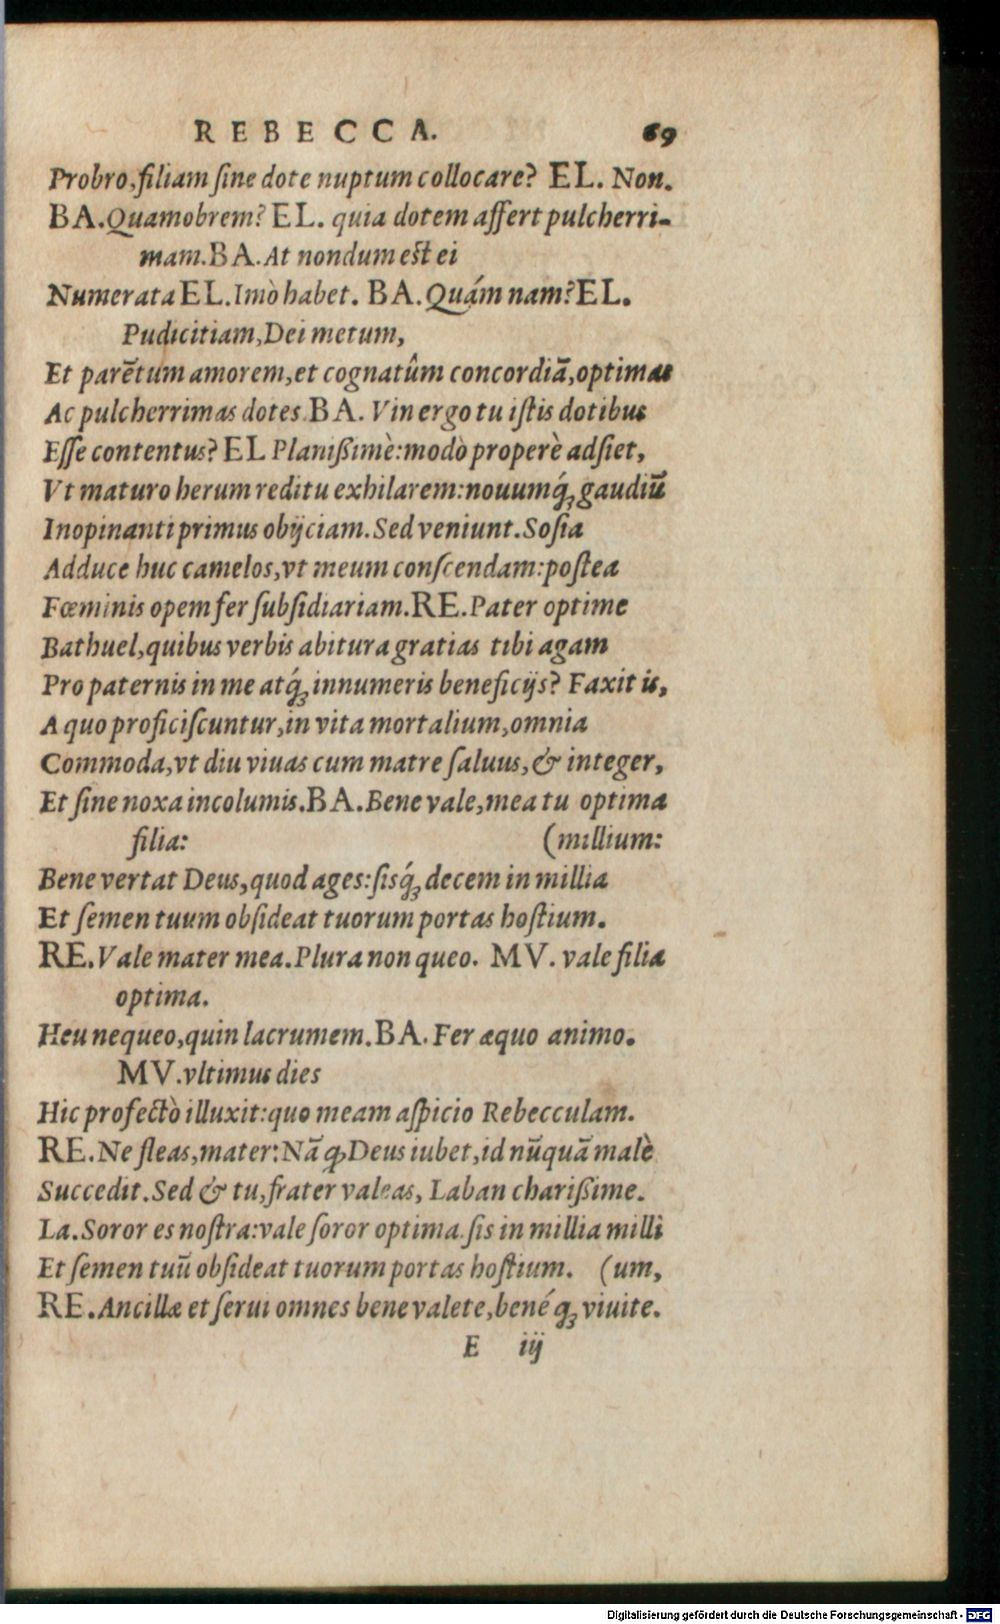 REBECCA. 69
Probro, filiam sine dote nuptum collocare? EL. Non.
BA. Quamobrem? EL. quia dotem affert pulcherri-
mam. BA. At nondum est ei
Numerata EL. Imò habet. BA. Quám nam? EL.
Pudicitiam, Dei metum,
Et parẽtum amorem, et cognatûm concordiã, optimas
Ac pulcherrimas dotes. BA. Vin ergo tu istis dotibus
Esse contentus? EL Planißimè: modò properè adsiet,
Vt maturo herum reditu exhilarem: nouumq́; gaudiũ
Inopinanti primus obijciam. Sed veniunt. Sosia
Adduce huc camelos, vt meum conscendam: postea
Fœminis opem fer subsidiariam. RE. Pater optime
Bathuel, quibus verbis abitura gratias tibi agam
Pro paternis in me atq́; innumeris beneficijs? Faxit is,
A quo proficiscuntur, in vita mortalium, omnia
Commoda, vt diu viuas cum matre saluus, & integer,
Et sine noxa incolumis. BA. Bene vale, mea tu optima
filia: (millium:
Bene vertat Deus, quod ages: sisq́; decem in millia
Et semen tuum obsideat tuorum portas hostium.
RE. Vale mater mea. Plura non queo. MV. vale filia
optima.
Heu nequeo, quin lacrumem. BA. Fer æquo animo.
MV. vltimus dies
Hic profectò illuxit: quo meam aspicio Rebecculam.
RE. Ne fleas, mater: Nã ꝙ Deus iubet, id nũquã malè
Succedit. Sed & tu, frater valeas, Laban charißime.
La. Soror es nostra: vale soror optima. sis in millia milli
Et semen tuũ obsideat tuorum portas hostium. (um,
RE. Ancillæ et serui omnes bene valete, benéq; viuite.
E iij
Digitalisierung gefördert durch die Deutsche Forschungsgemeinschaft - DFG